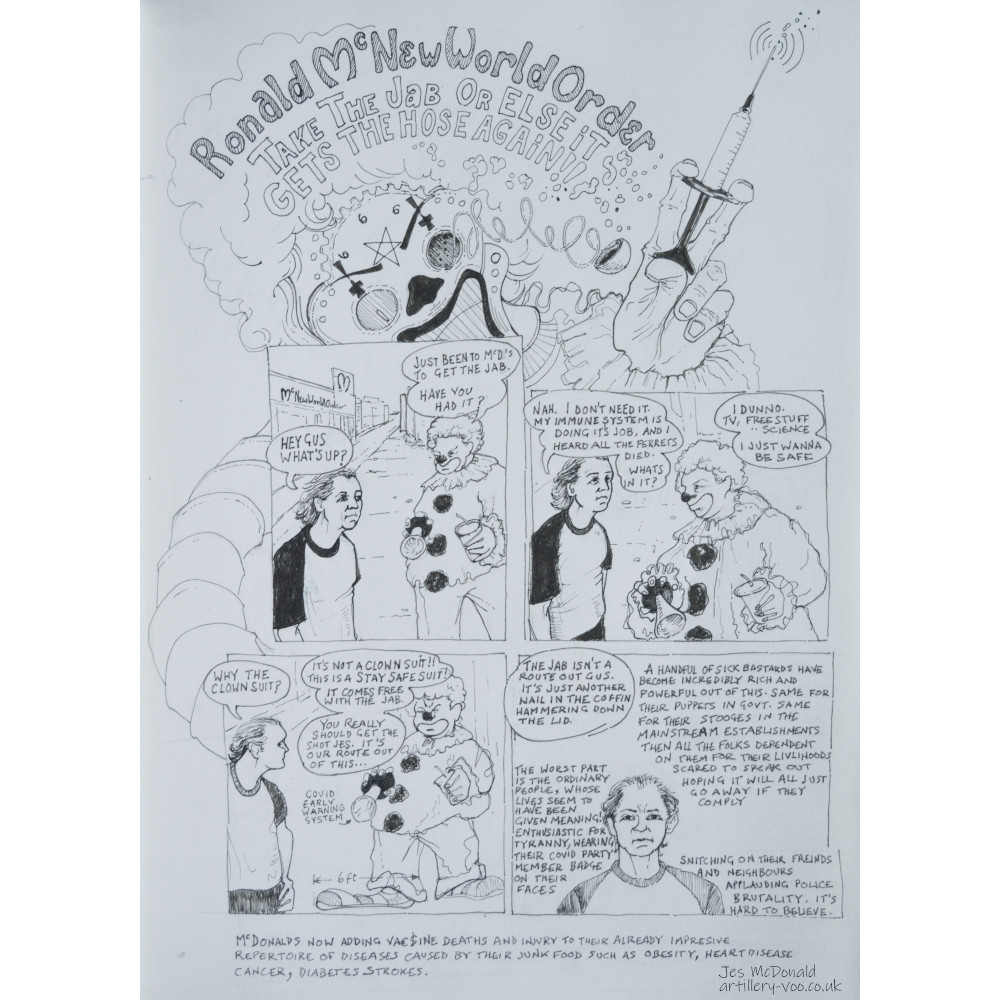 Ronald McNewWorldOrder
TAKE THE JAB OR ELSE iT
GETS THE HOSE AGAIN!!
6 6
6
McNewWorldOrder
M
JUST BEEN TO McD.'s
TO GET THE JAB.
HAVE YOU
HAD IT?
HEY GUS
WHAT'S UP?
NAH. I DON'T NEED IT.
MY IMMUNE SYSTEM IS
DOING IT'S JOB, AND I
HEARD ALL THE FERRETS
DIED.
WHATS
IN IT?
I DUNNO.
TV, FREE STUFF
.. SCIENCE
I JUST WANNA
BE SAFE
WHY THE
CLOWN SUIT?
IT'S NOT A CLOWN SUIT!!
THIS IS A STAY SAFE SUIT!
IT COMES FREE
WITH THE JAB.
YOU REALLY
SHOULD GET THE
SHOT JES. IT'S
OUR ROUTE OUT
OF THIS...
COVID
EARLY
WARNING
SYSTEM
6ft
THE JAB ISN'T A
ROUTE OUT GUS.
IT'S JUST ANOTHER
NAIL IN THE COFFIN
HAMMERING DOWN
THE LID.
A HANDFUL OF SICK BASTARDS HAVE
BECOME INCREDIBLY RICH AND
POWERFUL OUT OF THIS. SAME FOR
THEIR PUPPETS IN GOVT. SAME
FOR THEIR STOOGES IN THE
MAINSTREAM ESTABLISHMENTS
THEN ALL THE FOLKS DEPENDENT
ON THEM FOR THEIR LIVLIHOODS
SCARED TO SPEAK OUT
HOPING IT WILL ALL JUST
GO AWAY IF THEY
COMPLY
THE WORST PART
IS THE ORDINARY
PEOPLE, WHOSE
LIVES SEEM TO
HAVE BEEN
GIVEN MEANING!
ENTHUSIASTIC FOR
TYRANNY, WEARING
THEIR COVID PARTY
MEMBER BADGE
ON THEIR
FACES
SNITCHING ON THEIR FREINDS
AND NEIGHBOURS
APPLAUDING POLICE
BRUTALITY. IT'S
HARD TO BELIEVE.
McDONALDS NOW ADDING VAE$INE DEATHS AND INJURY TO THEIR ALREADY IMPRESIVE
REPERTOIRE OF DISEASES CAUSED BY THEIR JUNK FOOD SUCH AS OBESITY, HEART DISEASE
CANCER, DIABETES STROKES.
Jes McDonald
artillery-voo.co.uk